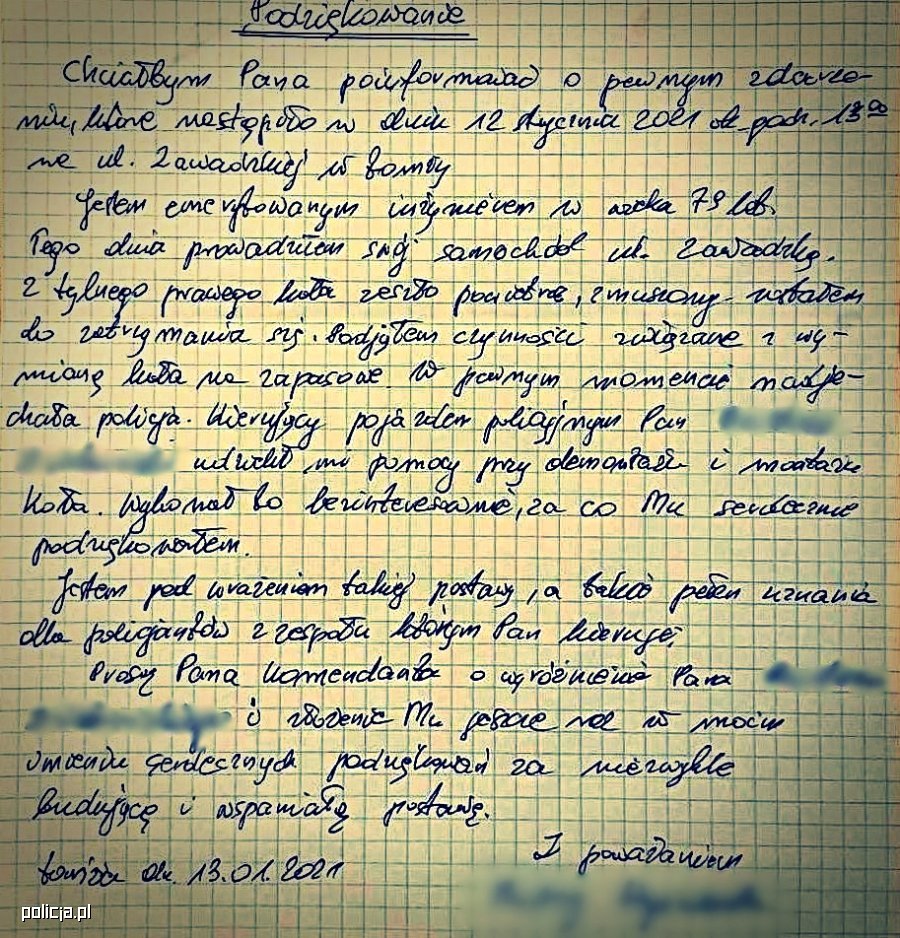 Podziękowanie
Chciałbym Pana poinformować o pewnym zdarze-
niu, które nastąpiło w dniu 12 stycznia 2021 ok. godz. 13⁰⁰
na ul. Zawadzkiej w Łomży
Jestem emerytowanym inżynierem w wieku 79 lat.
Tego dnia prowadziłem swój samochód ul. Zawadzką.
Z tylnego prawego koła zeszło powietrze, zmuszony zostałem
do zatrzymania się. Podjąłem czynności związane z wy-
mianą koła na zapasowe. W pewnym momencie nadje-
chała policja. Kierujący pojazdem policyjnym Pan
udzielił mi pomocy przy demontażu i montażu
koła. Wykonał to bezinteresownie, za co Mu serdecznie
podziękowałem.
Jestem pod wrażeniem takiej postawy, a także pełen uznania
dla policjantów z zespołu którym Pan kieruje.
Proszę Pana Komendanta o wyróżnienie Pana
i złożenie Mu jeszcze raz w moim
imieniu serdecznych podziękowań za niezwykle
budującą i wspaniałą postawę.
Z poważaniem
Łomża dn. 13.01.2021
policja.pl